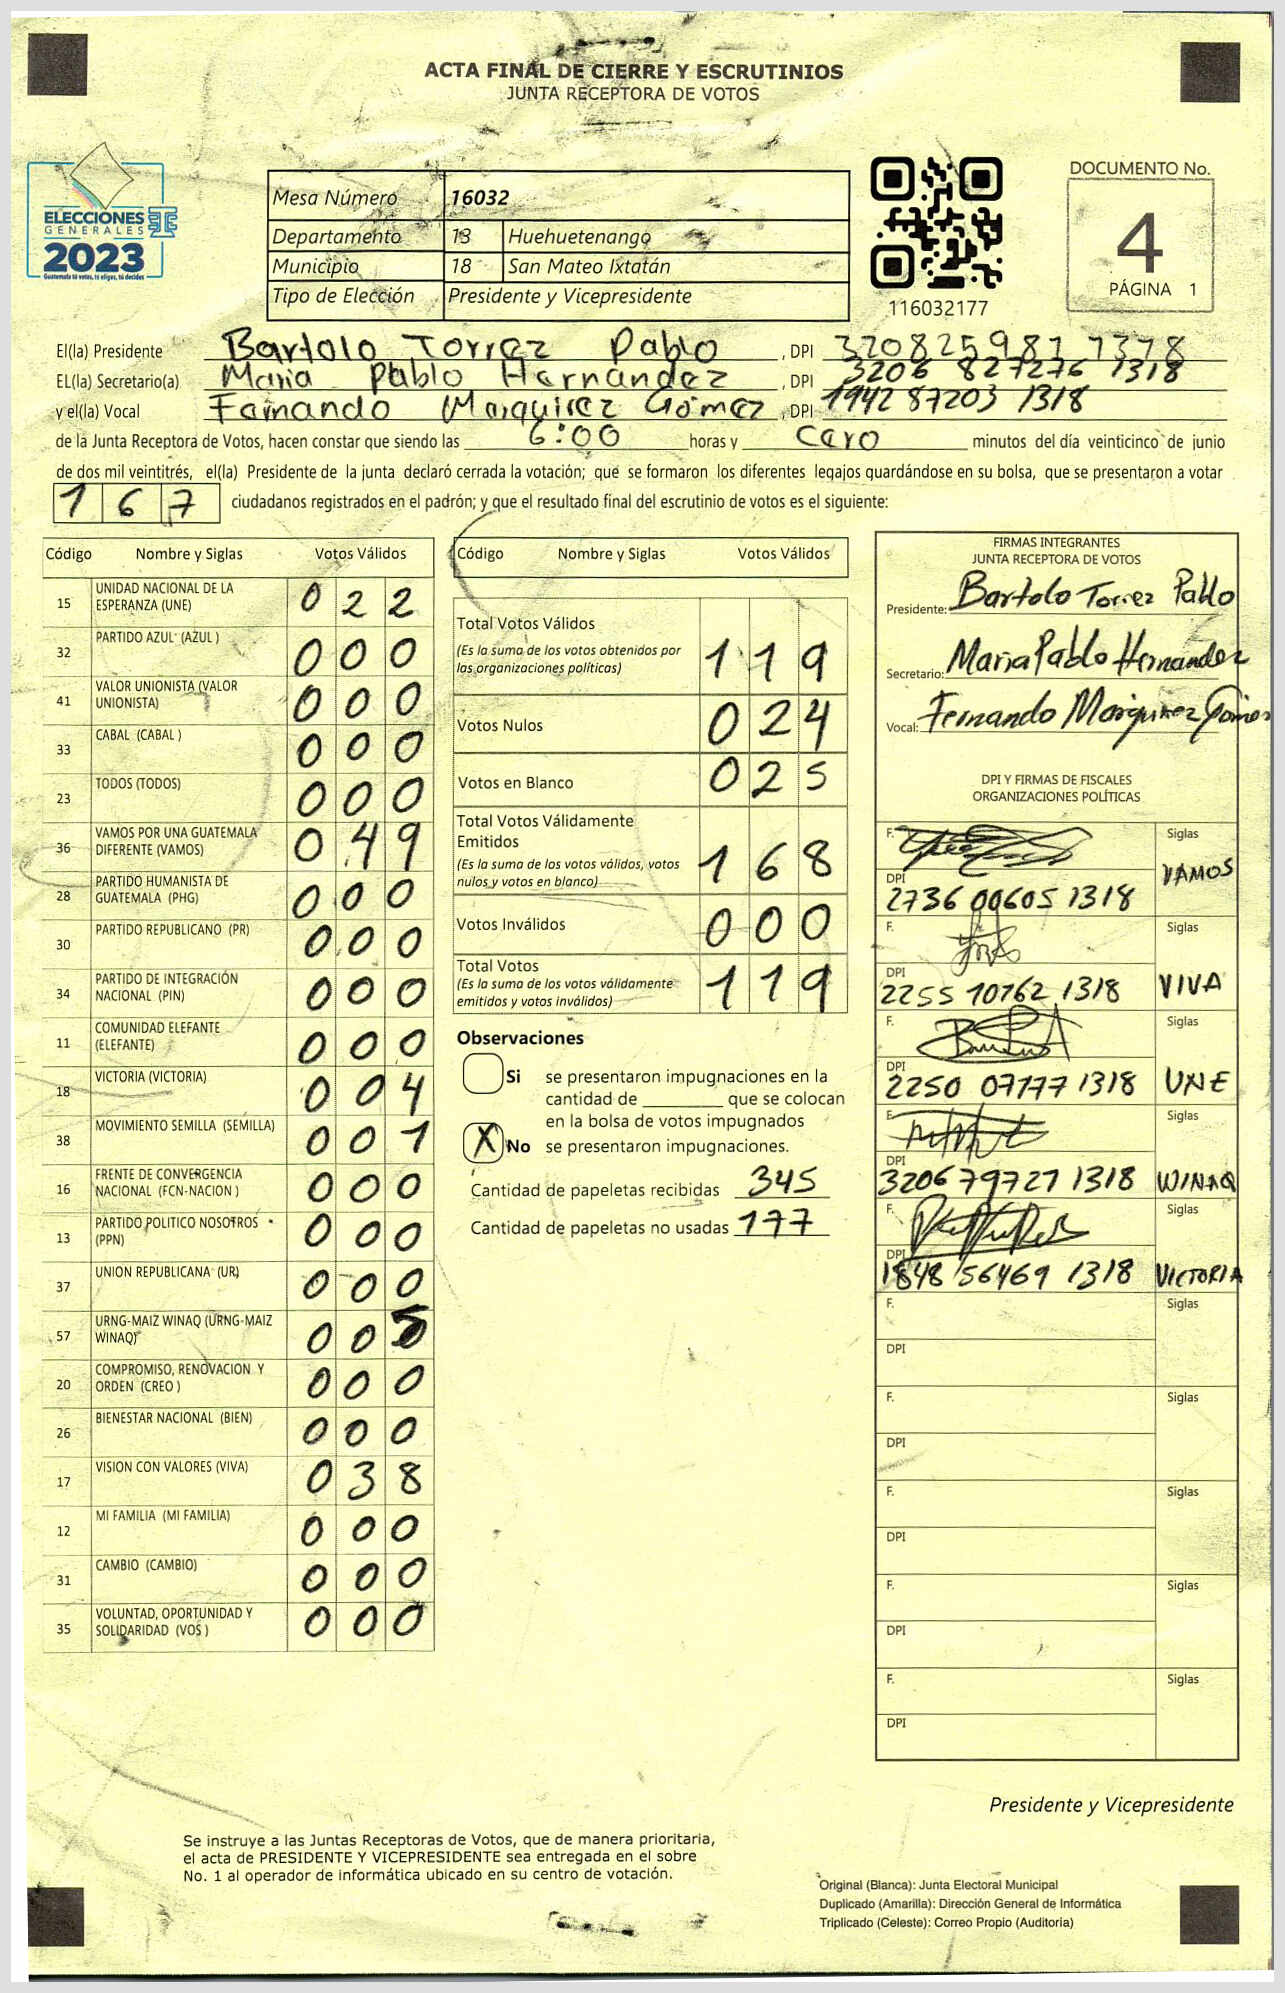 ACTA FINAL DE CIERRE Y ESCRUTINIOS
JUNTA RECEPTORA DE VOTOS
ELECCIONES
GENERALES
2023
Guatemala tú votas, tú eliges, tú decides
Mesa Número 16032
Departamento 13 Huehuetenango
Municipio 18 San Mateo Ixtatán
Tipo de Elección Presidente y Vicepresidente
116032177
DOCUMENTO No.
4
PÁGINA 1
El(la) Presidente Bartolo Torrez Pablo , DPI
EL(la) Secretario(a) Maria Pablo Hernández , DPI 3206 827276 1318
y el(la) Vocal Fernando Marquirez Gómez , DPI 1942 87203 1318
de la Junta Receptora de Votos, hacen constar que siendo las 6:00 horas y cero minutos del día veinticinco de junio
de dos mil veintitrés, el(la) Presidente de la junta declaró cerrada la votación; que se formaron los diferentes legajos guardándose en su bolsa, que se presentaron a votar
167 ciudadanos registrados en el padrón; y que el resultado final del escrutinio de votos es el siguiente:
Código Nombre y Siglas Votos Válidos
15 UNIDAD NACIONAL DE LA ESPERANZA (UNE) 022
32 PARTIDO AZUL (AZUL ) 000
41 VALOR UNIONISTA (VALOR UNIONISTA) 000
33 CABAL (CABAL ) 000
23 TODOS (TODOS) 000
36 VAMOS POR UNA GUATEMALA DIFERENTE (VAMOS) 049
28 PARTIDO HUMANISTA DE GUATEMALA (PHG) 000
30 PARTIDO REPUBLICANO (PR) 000
34 PARTIDO DE INTEGRACIÓN NACIONAL (PIN) 000
11 COMUNIDAD ELEFANTE (ELEFANTE) 000
18 VICTORIA (VICTORIA) 004
38 MOVIMIENTO SEMILLA (SEMILLA) 001
16 FRENTE DE CONVERGENCIA NACIONAL (FCN-NACION ) 000
13 PARTIDO POLITICO NOSOTROS (PPN) 000
37 UNION REPUBLICANA (UR) 000
57 URNG-MAIZ WINAQ (URNG-MAIZ WINAQ) 005
20 COMPROMISO, RENOVACION Y ORDEN (CREO ) 000
26 BIENESTAR NACIONAL (BIEN) 000
17 VISION CON VALORES (VIVA) 038
12 MI FAMILIA (MI FAMILIA) 000
31 CAMBIO (CAMBIO) 000
35 VOLUNTAD, OPORTUNIDAD Y SOLIDARIDAD (VOS ) 000
Código Nombre y Siglas Votos Válidos
Total Votos Válidos
(Es la suma de los votos obtenidos por
las organizaciones políticas) 119
Votos Nulos 024
Votos en Blanco 025
Total Votos Válidamente
Emitidos
(Es la suma de los votos válidos, votos
nulos y votos en blanco) 168
Votos Inválidos 000
Total Votos
(Es la suma de los votos válidamente
emitidos y votos inválidos) 119
Observaciones
Si se presentaron impugnaciones en la
cantidad de ________ que se colocan
en la bolsa de votos impugnados
X No se presentaron impugnaciones.
Cantidad de papeletas recibidas 345
Cantidad de papeletas no usadas 177
FIRMAS INTEGRANTES
JUNTA RECEPTORA DE VOTOS
Presidente: Bartolo Torrez Pablo
Secretario: Maria Pablo Hernandez
Vocal: Fernando Marquirez Gómez
DPI Y FIRMAS DE FISCALES
ORGANIZACIONES POLÍTICAS
F. Siglas
DPI 2736 00605 1318 VAMOS
F. Siglas
DPI 2255 10762 1318 VIVA
F. Siglas
DPI 2250 07177 1318 UNE
F. Siglas
DPI 3206 79727 1318 WINAQ
F. Siglas
DPI 1848 56469 1318 VICTORIA
F. Siglas
DPI
F. Siglas
DPI
F. Siglas
DPI
F. Siglas
DPI
F. Siglas
DPI
Presidente y Vicepresidente
Se instruye a las Juntas Receptoras de Votos, que de manera prioritaria,
el acta de PRESIDENTE Y VICEPRESIDENTE sea entregada en el sobre
No. 1 al operador de informática ubicado en su centro de votación.
Original (Blanca): Junta Electoral Municipal
Duplicado (Amarilla): Dirección General de Informática
Triplicado (Celeste): Correo Propio (Auditoria)